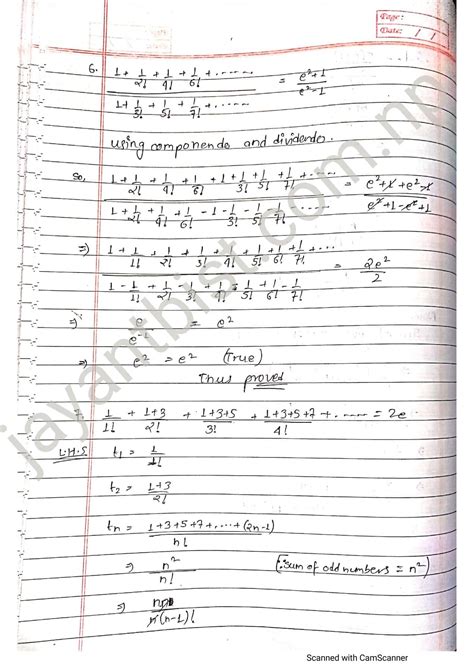 Page :
Date : / /
6. (1 + 1/2! + 1/4! + 1/6! + ......) / (1 + 1/3! + 1/5! + 1/7! + ......) = (e²+1)/(e²-1)
using componendo and dividendo.
So, (1 + 1/2! + 1/4! + 1/6! + 1 + 1/3! + 1/5! + 1/7! + ...) / (1 + 1/2! + 1/4! + 1/6! - 1 - 1/3! - 1/5! - 1/7!) = (e²+1+e²-1)/(e²+1-e²+1)
⇒ (1 + 1/1! + 1/2! + 1/3! + 1/4! + 1/5! + 1/6! + 1/7! + ...) / (1 - 1/1! + 1/2! - 1/3! + 1/4! - 1/5! + 1/6! - 1/7!) = 2e²/2
⇒ e/e⁻¹ = e²
⇒ e² = e² (True)
Thus proved
7. 1/1! + (1+3)/2! + (1+3+5)/3! + (1+3+5+7)/4! + ...... = 2e
L.H.S t₁ = 1/1!
t₂ = (1+3)/2!
tn = (1+3+5+7+....+(2n-1))/n!
⇒ n²/n! (∵ sum of odd numbers = n²)
⇒ n(n-1)!
jayantbist.com.np
Scanned with CamScanner